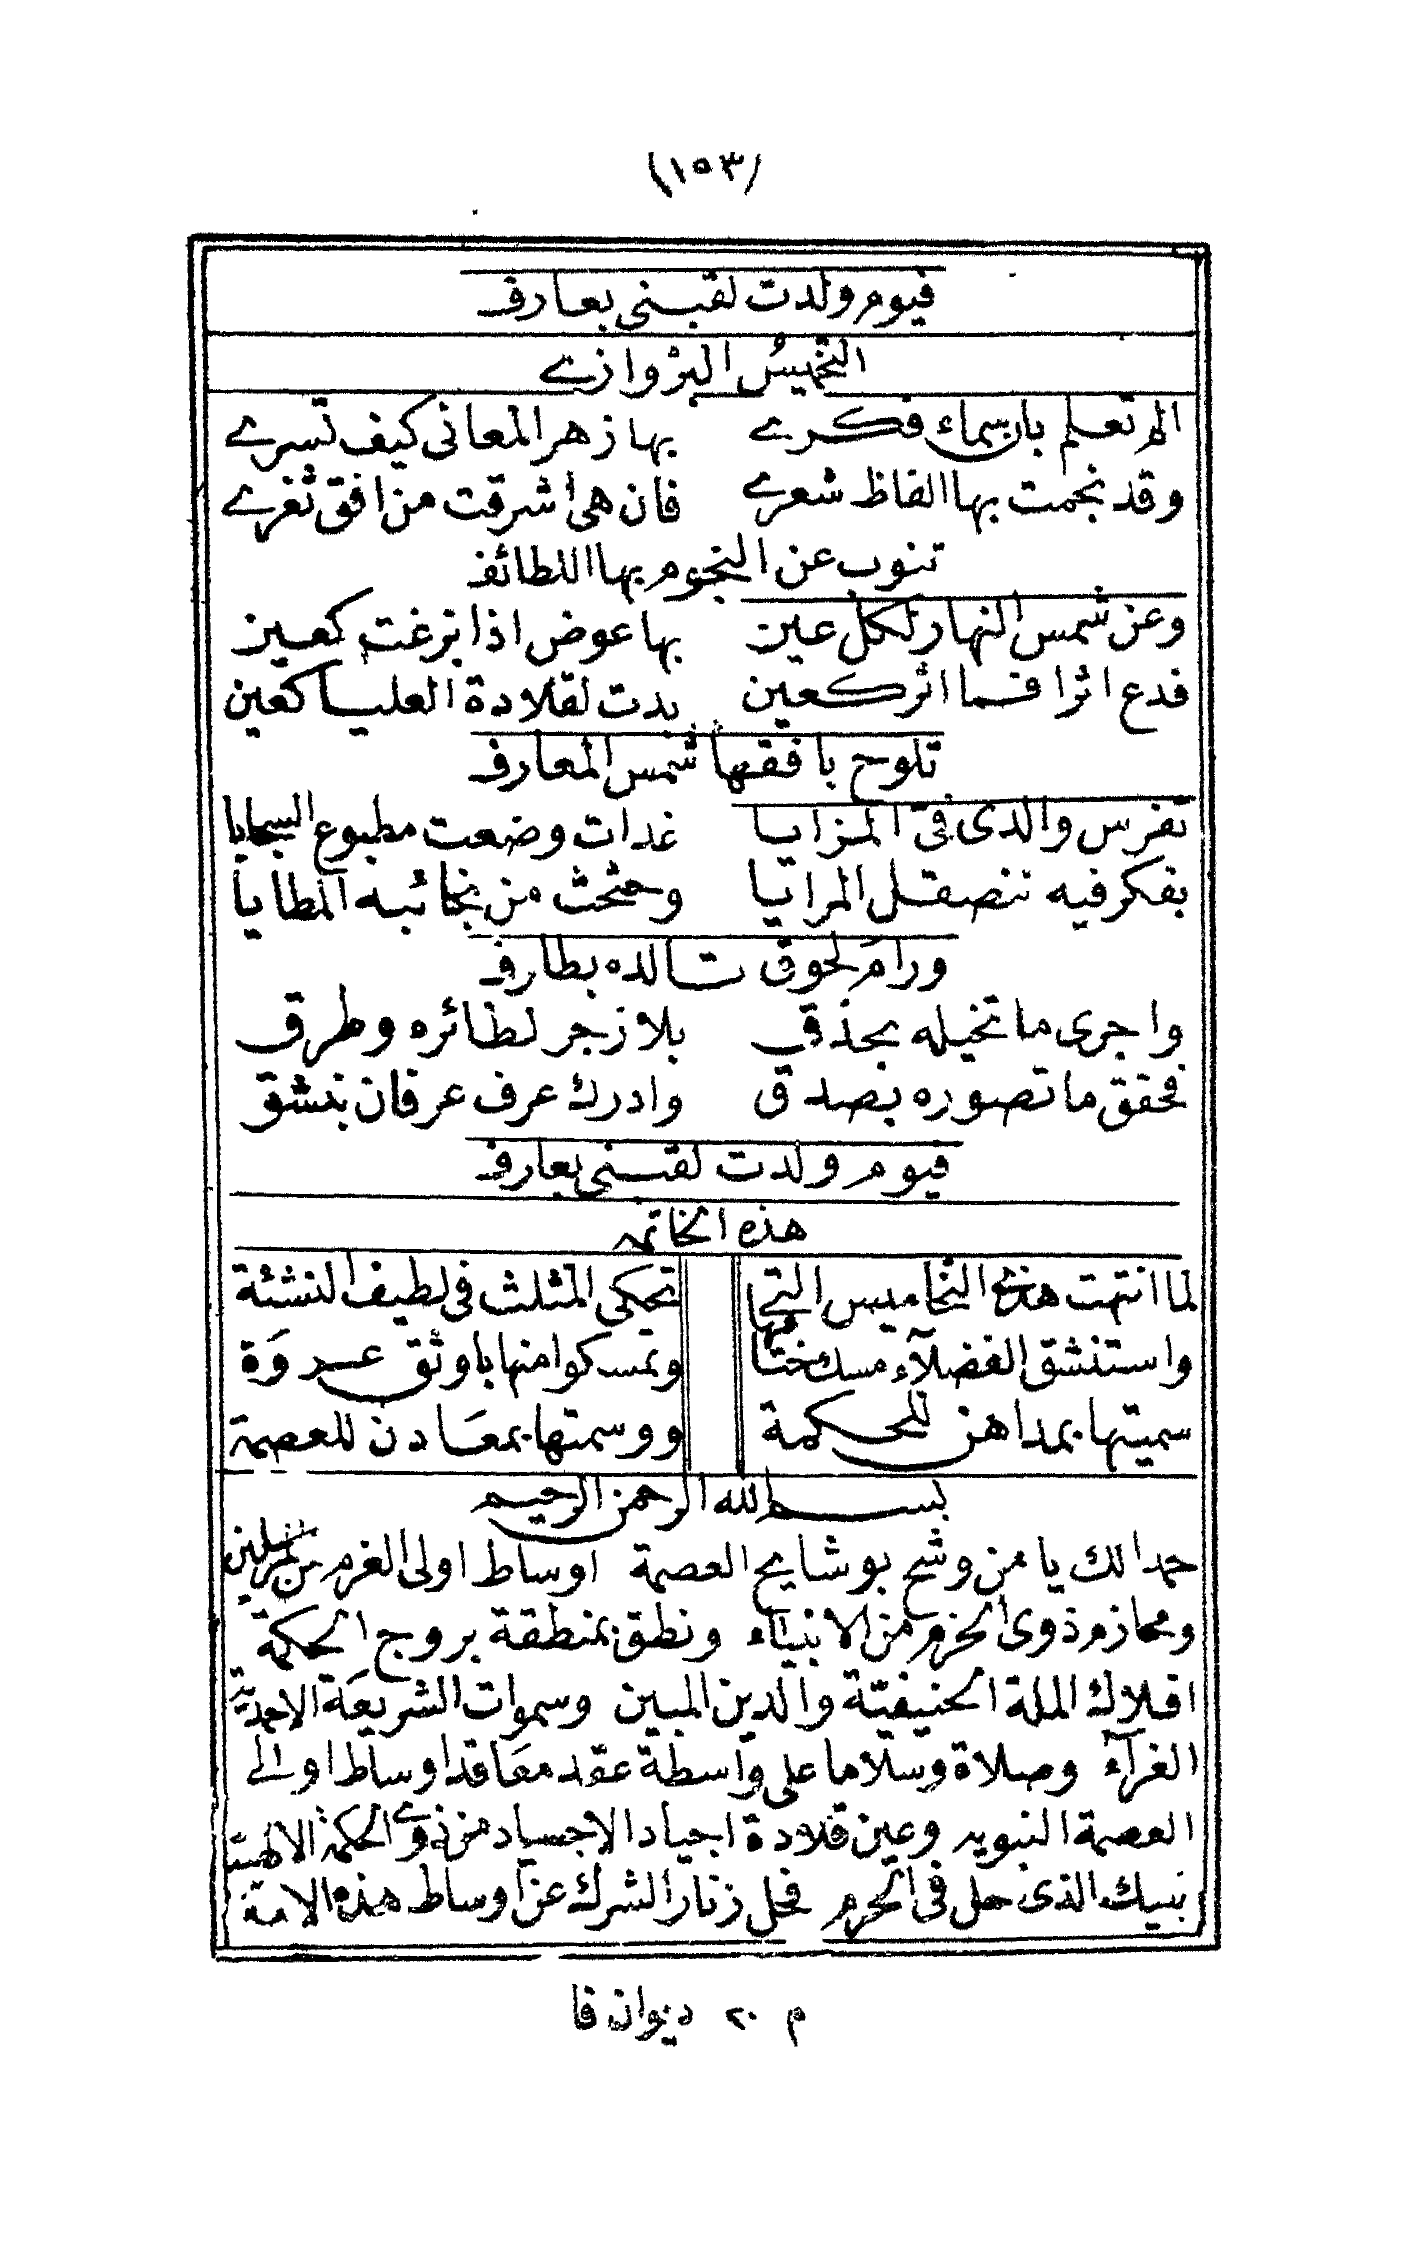 (١٥٣)
فيوم ولدت لقبنى بعارف
التخميس البروازے
الم تعلم بان سماء فكرے بها زهر المعانى كيف تسرے
وقد نجمت بها الفاظ شعرے فان هى أشرقت من افق ثغرے
تنوب عن النجوم بها اللطائف
وعن شمس النهار لكل عين بها عوض اذا بزغت كعين
فدع اثرا فما اثر كعين بدت لقلادة العليا كعين
تلوح بافقها شمس المعارف
تفرس والدى فىّ المزايا غدات وضعت مطبوع السجايا
بفكر فيه تنصقل المرايا وحثحث من نجائبه المطايا
ورام لحوق تالده بطارف
واجرى ما تخيله بحذق بلا زجر لطائره وطرق
فحقق ما تصوره بصدق وادرك عرف عرفان بنشق
فيوم ولدت لقبنى بعارف
هذه الخاتمه
لما انتهت هذى التخاميس التى تحكى المثلث فى لطيف النشئة
واستنشق الفضلآء مسك ختامها وتمسكوا منها باوثق عروة
سميتها بمداهن للحكمة ووسمتها بمعادن للعصمة
بسم الله الرحمن الرحيم
حمدا لك يا من وشح بوشايح العصمة اوساط اولى العزم من المرسلين
ومحازم ذوى الحزم من الانبياء ونطق بمنطقة بروج الحكمة
افلاك الملة الحنيفيّة والدين المبين وسموات الشريعة الاحمديّة
الغرآء وصلاة وسلاما على واسطة عقد معاقد اوساط اولى
العصمة النبويه وعين قلادة اجياد الاجساد من ذوے الحكمة الالهية
نبيك الذى حل فى الحرم فحل زنار الشرك عن اوساط هذه الامة
م ٢٠ ديوان فا